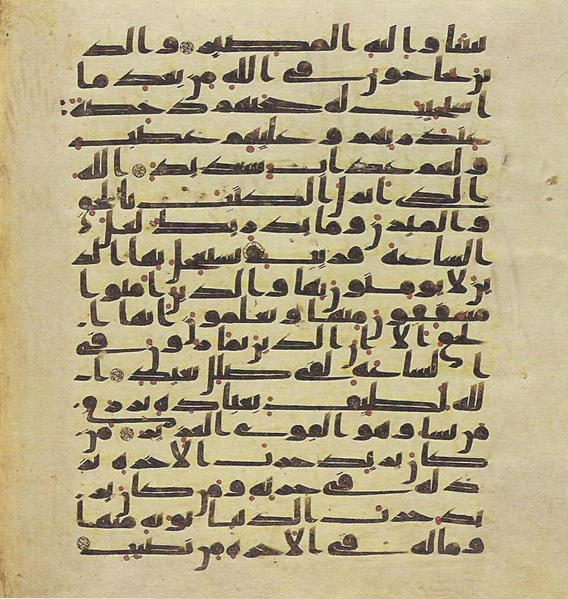 بيننا واليه المصير والذ
ين يحاجون في الله من بعد ما
استجيب له حجتهم دحضة
عند ربهم وعليهم غضب
ولهم عذاب شديد الله
الذي انزل الكتب بالحق
والميزن وما يدريك لعل
الساعة قريب يستعجل بها الذ
ين لا يومنون بها والذين امنوا
مشفقون منها ويعلمون انها ا
لحق الا ان الذين يمارون في
الساعة لفي ضلل بعيد ا
لله لطيف بعباده يرزق
من يشا وهو القوي العزيز من
كان يريد حرث الاخرة نز
د له في حرثه ومن كان ير
يد حرث الدنيا نوته منها
وما له في الاخرة من نصيب